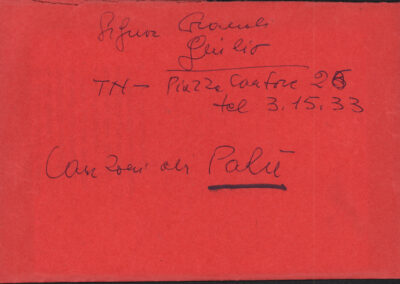 Signor
Giulio
TN - Piazza Cantore 26
tel 3.15.33
Canzoni di Palù